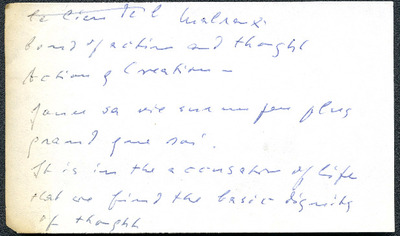 Malraux
bond of action and thought
Action & Creation –
Jouer sa vie sur un jeu plus
grand que soi.
It is in the accusation of life
that we find the basic dignity
of thought